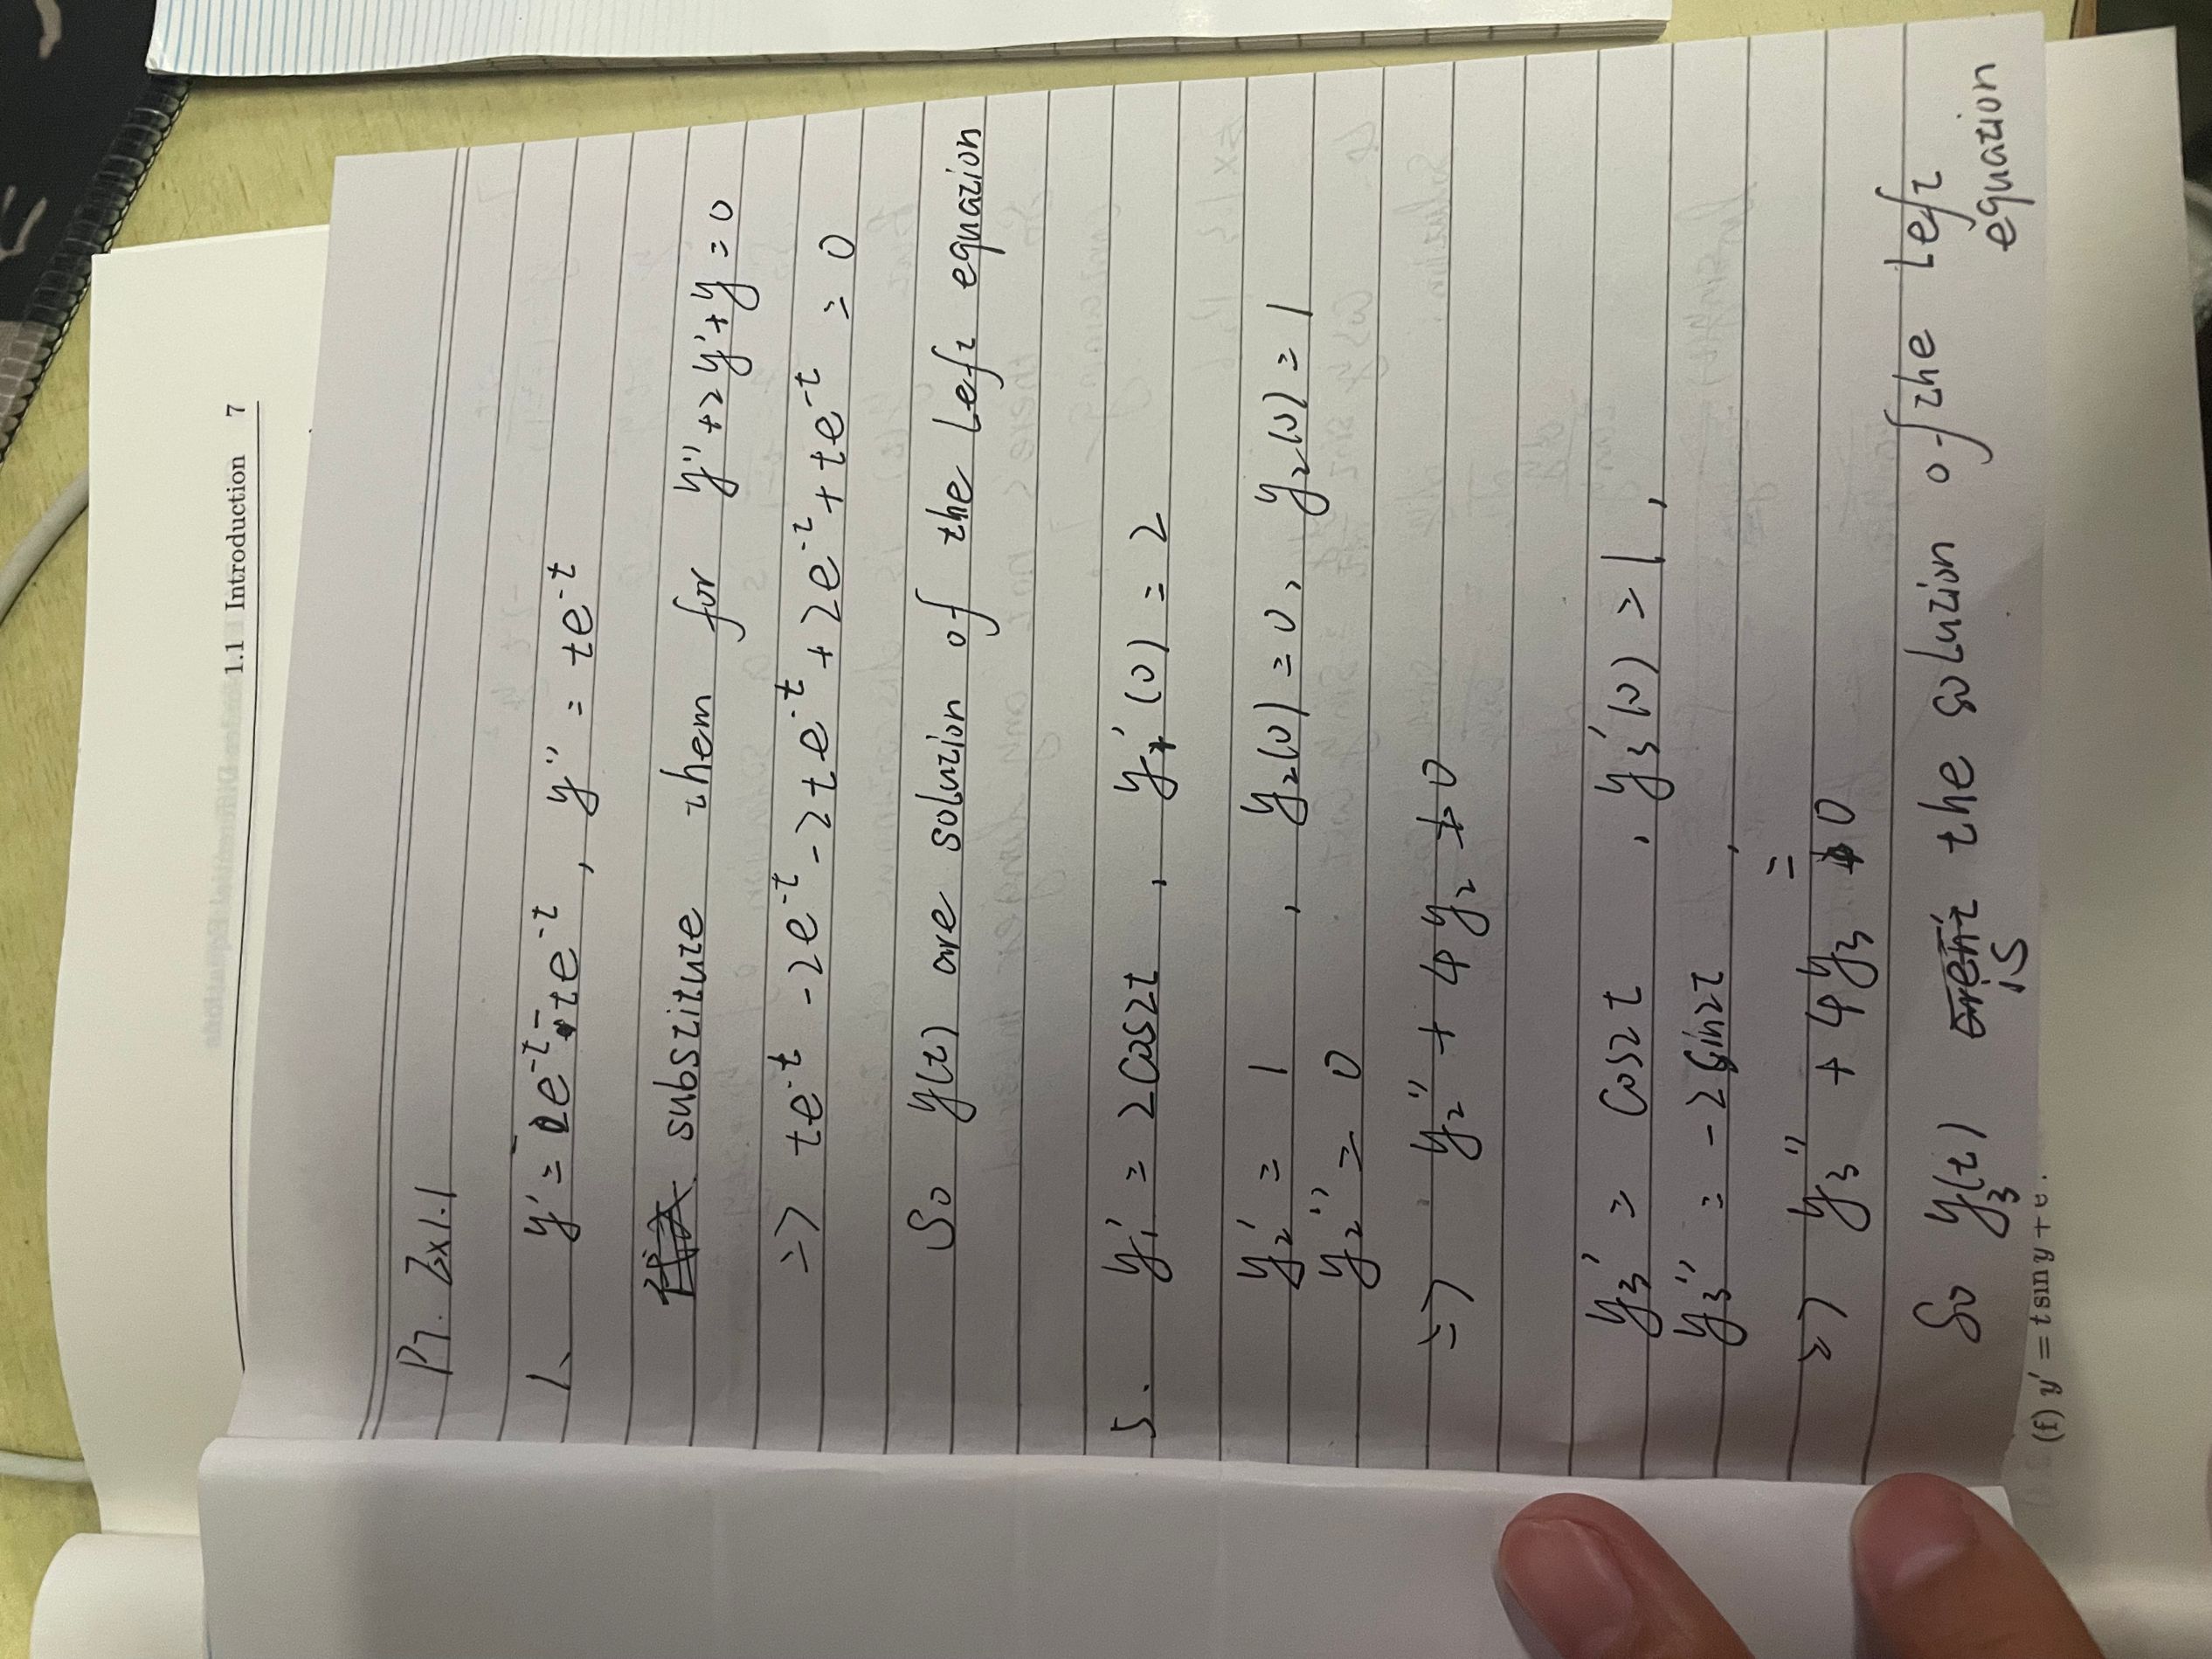 1.1 Introduction 7
P7. Ex1.1
1、 y' = -e^{-t} - te^{-t} , y'' = te^{-t}
substitute them for y'' + 2y' + y = 0
=> te^{-t} - 2e^{-t} - 2te^{-t} + 2e^{-t} + te^{-t} = 0
So y(t) are solution of the left equation
5. y₁' = 2cos2t , y₁'(0) = 2
y₂' = 1 , y₂(0) = 0, y₂(0) = 1
y₂'' = 0
=> y₂'' + 4y₂ ≠ 0
y₃' = cos2t , y₃'(0) = 1 ,
y₃'' = -2sin2t ,
=> y₃'' + 4y₃ = 0
So y₃(t) is the solution of the left
equation
(f) y' = t sin y + e .